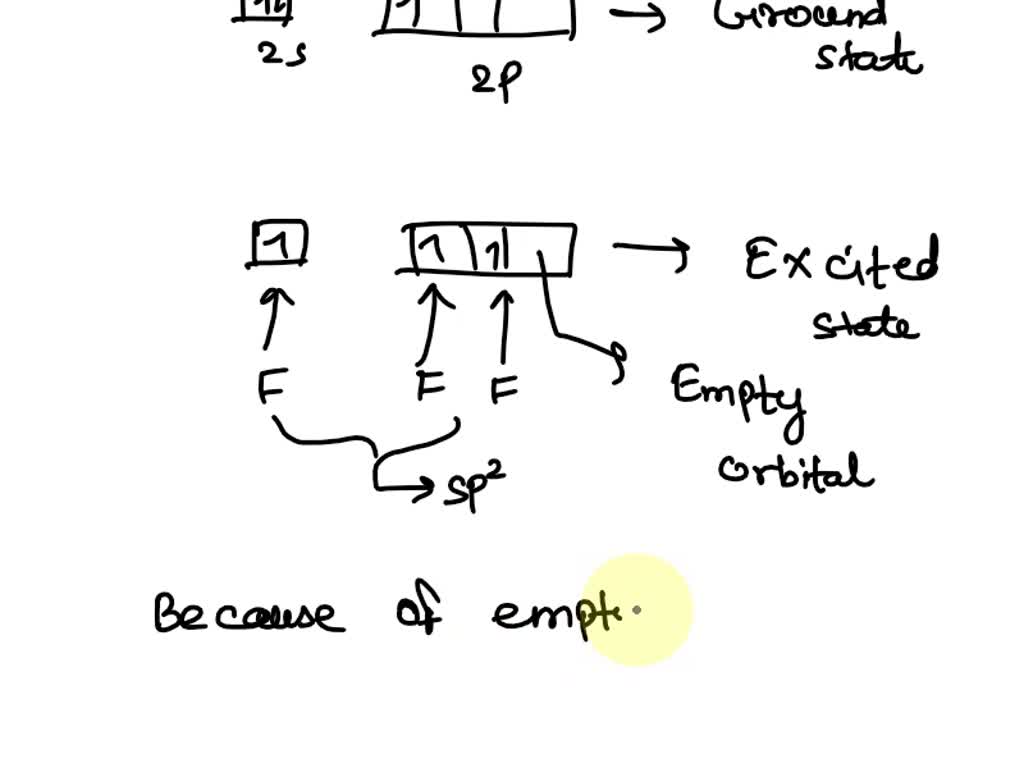 1↓ 1 → Ground
2s 2p state
1 1 1 → Excited
state
F F F Empty
orbital
sp²
Because of empt